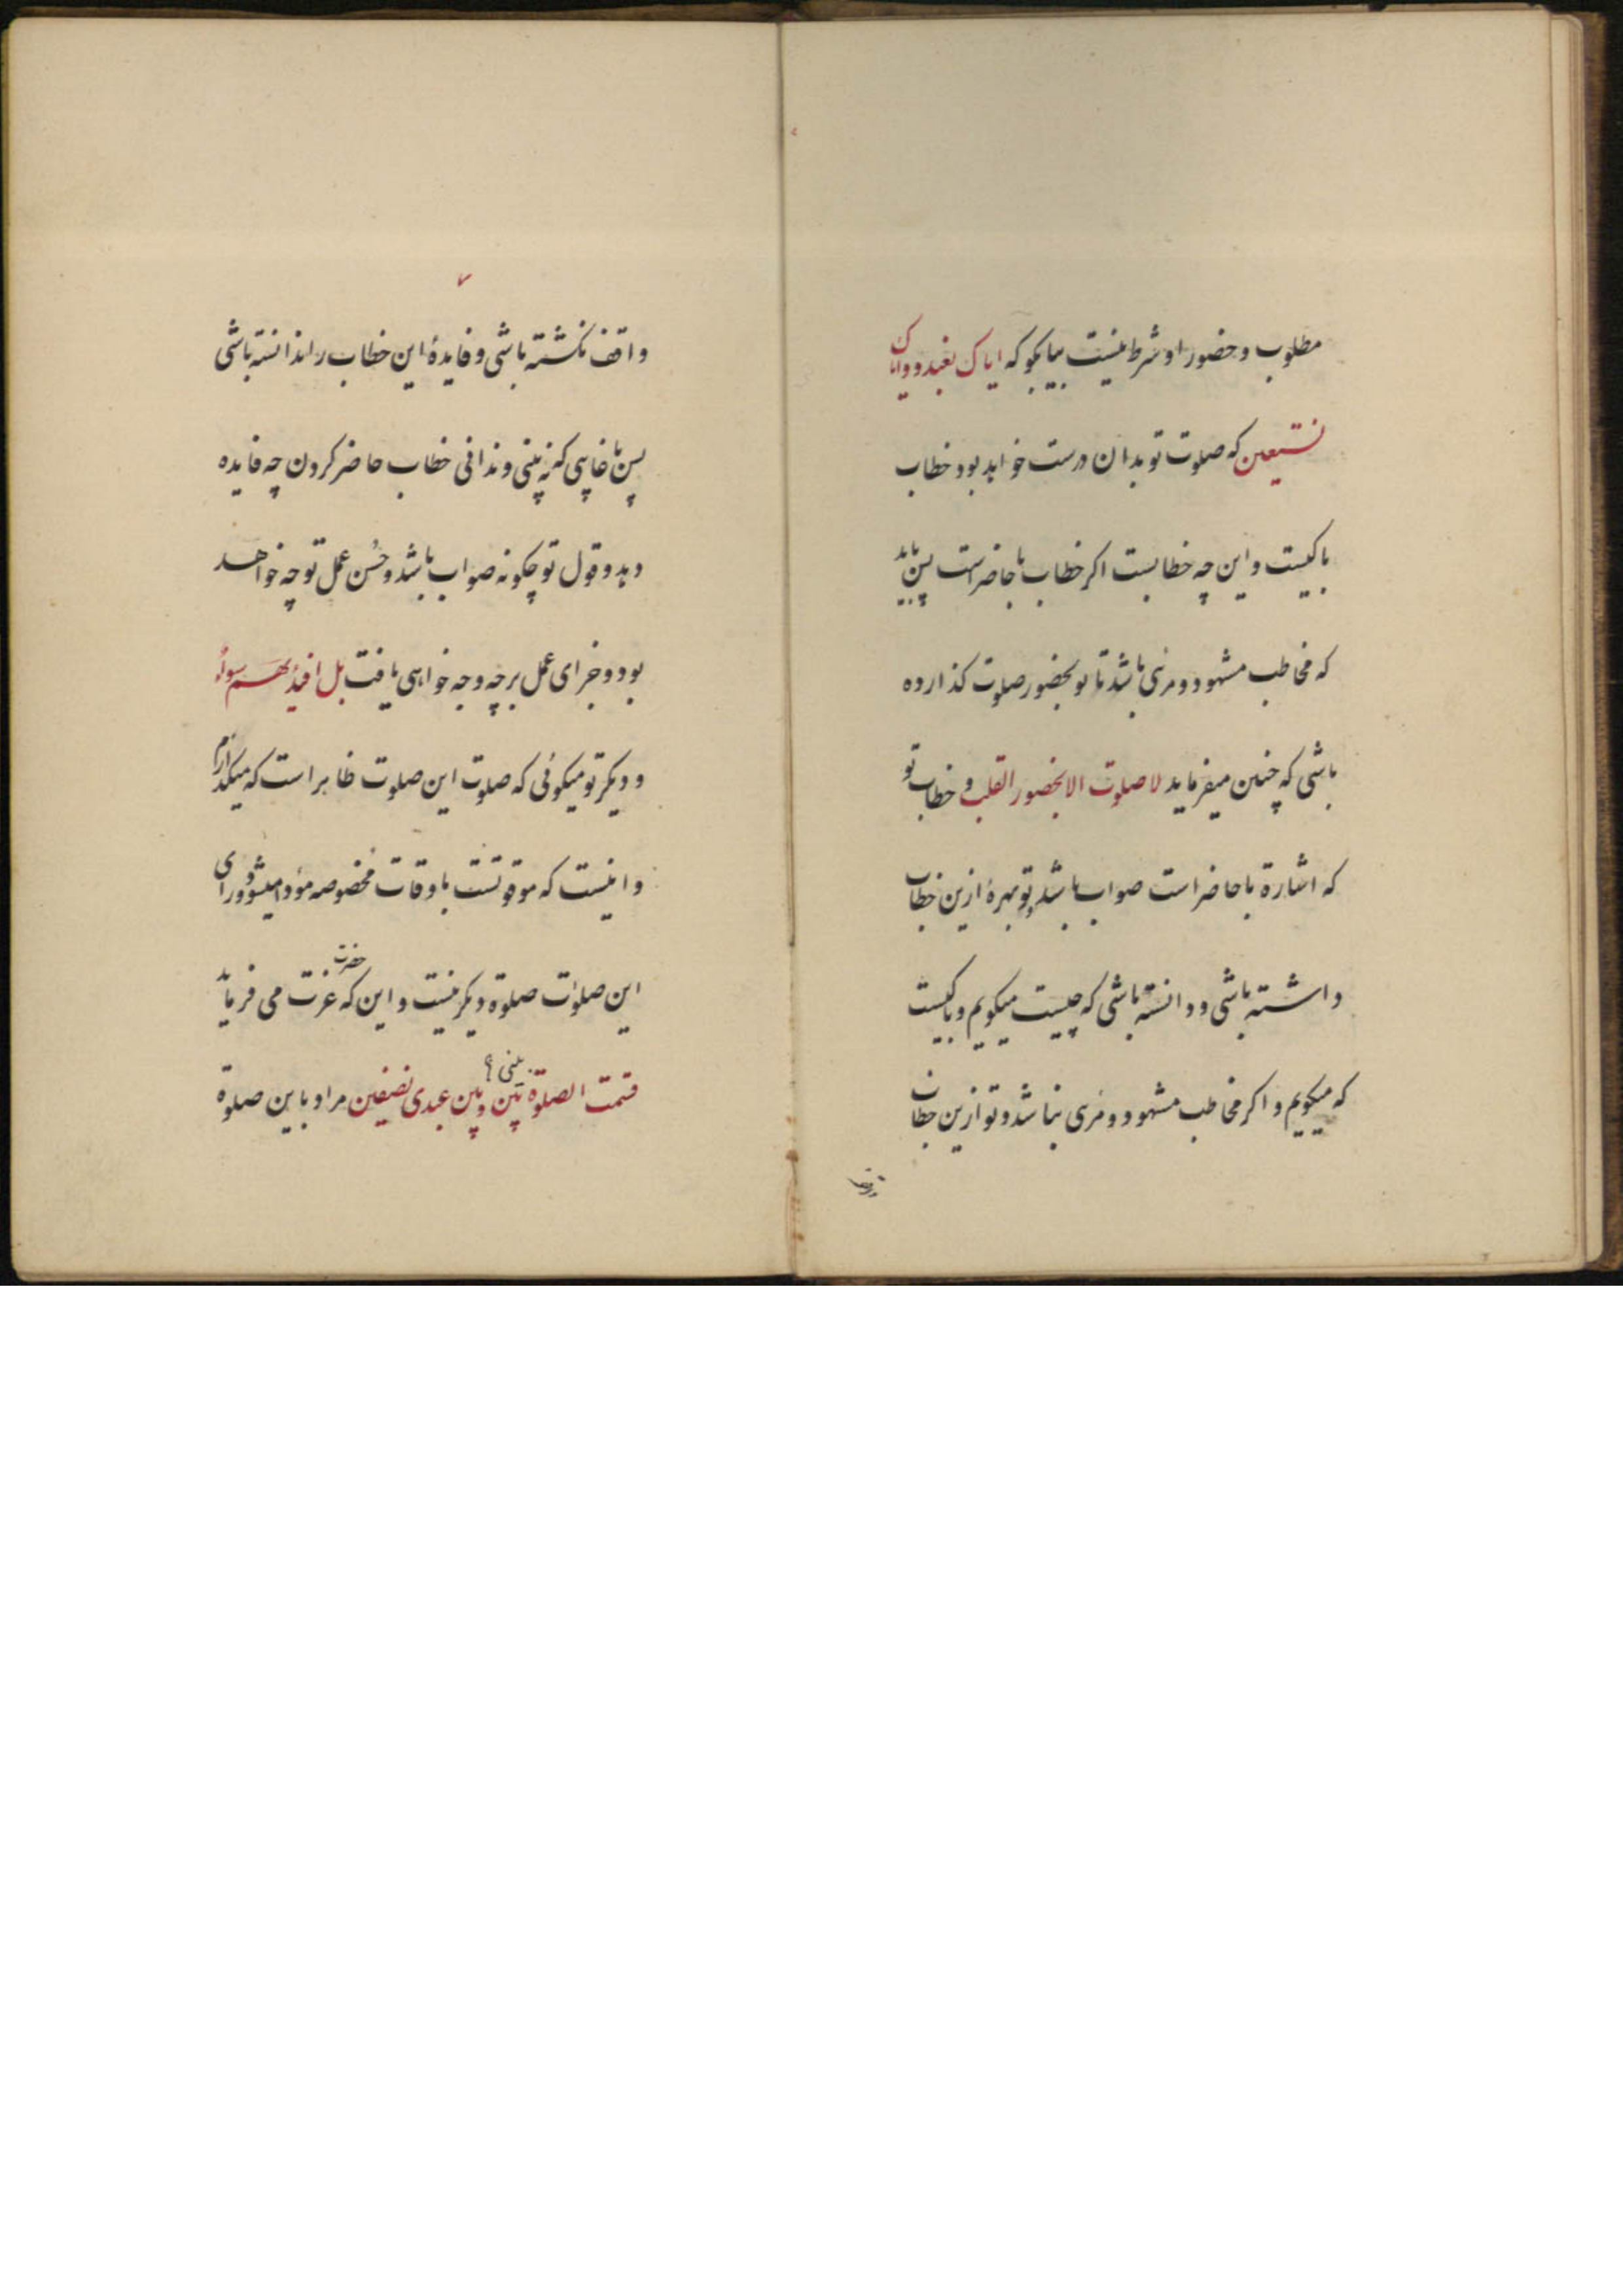 مطلوب و حضور او شرط نیست بیا بکو که ایاک نعبد و وایاک
نستعین که صلوت تو بدان درست خواهد بود خطاب
با کیست و این چه خطابست اکر خطاب با حاضر است پس باید
که مخاطب مشهود و مرئی باشد تا تو بحضور صلوت کذارده
باشی که چنین میفرماید لا صلوت الا بحضور القلب و خطاب تو
که اشارة با حاضر است صواب باشد و تو بهرهٔ ازین خطاب
داشته باشی و دانسته باشی که چیست میکویم و با کیست
که میکویم و اکر مخاطب مشهود و مرئی نباشد و تو ازین خطاب
۷
واقف نکشته باشی و فایدهٔ این خطاب را ندانسته باشی
پس با غایبی که نه بینی و ندانی خطاب حاضر کردن چه فایده
دهد و قول تو چکونه صواب باشد و حُسن عمل تو چه خواهد
بود و جزای عمل بر چه وجه خواهی یافت بل افیدٔتهم سواءٌ
و دیکر تو میکوئی که صلوت این صلوت ظاهر است که میکذارم
و اینست که موقوتست باوقات مخصوصه مؤدا میشود و ورای
این صلوٰت صلوة دیکر نیست و این که حضرت عزت می فرماید
قسمت الصلوة بینی و بین عبدی نصفین مراد باین صلوة